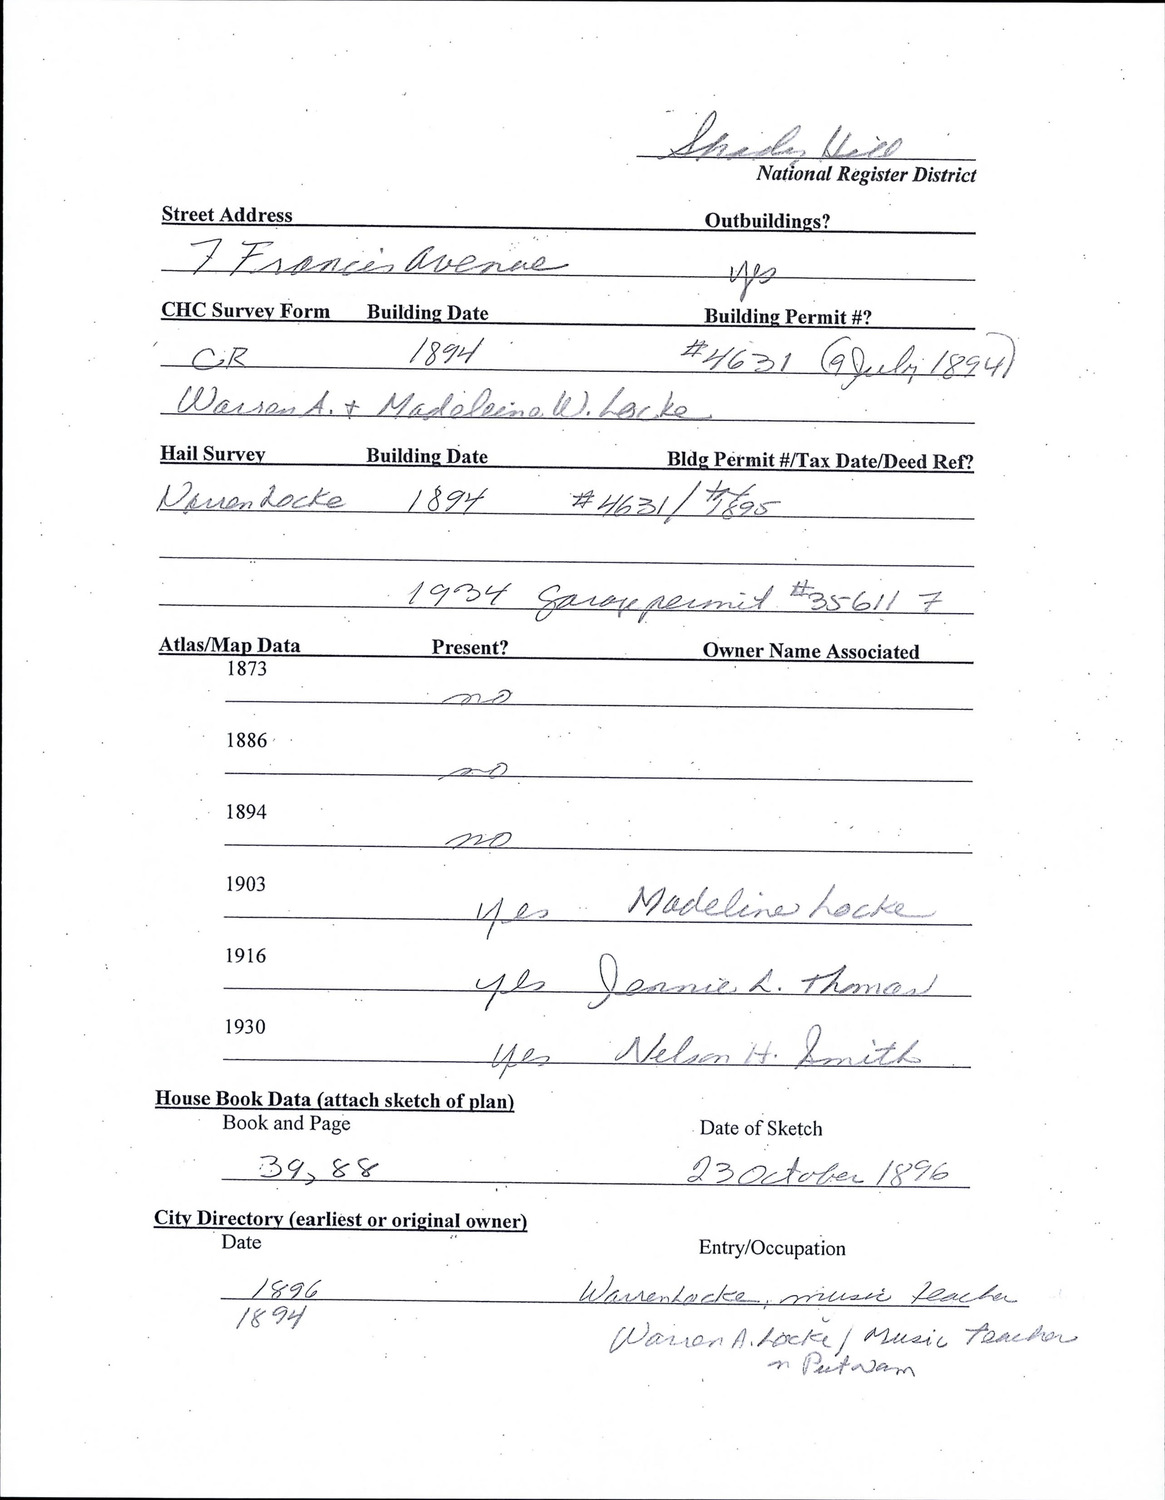 Shady Hill
National Register District
Street Address Outbuildings?
7 Francis Avenue yes
CHC Survey Form Building Date Building Permit #?
CR 1894 #4631 (9 July, 1894)
Warren A. + Madeleine W. Locke
Hail Survey Building Date Bldg Permit #/Tax Date/Deed Ref?
Warren Locke 1894 #4631/ 1895
1934 Garage permit #35611 7
Atlas/Map Data Present? Owner Name Associated
1873
no
1886
no
1894
no
1903
yes Madeline Locke
1916
yes Jennie L. Thomas
1930
yes Nelson H. Smith
House Book Data (attach sketch of plan)
Book and Page Date of Sketch
39, 88 23 October 1896
City Directory (earliest or original owner)
Date Entry/Occupation
1896 Warren Locke, music teacher
1894 Warren A. Locke / Music teacher
n Putnam